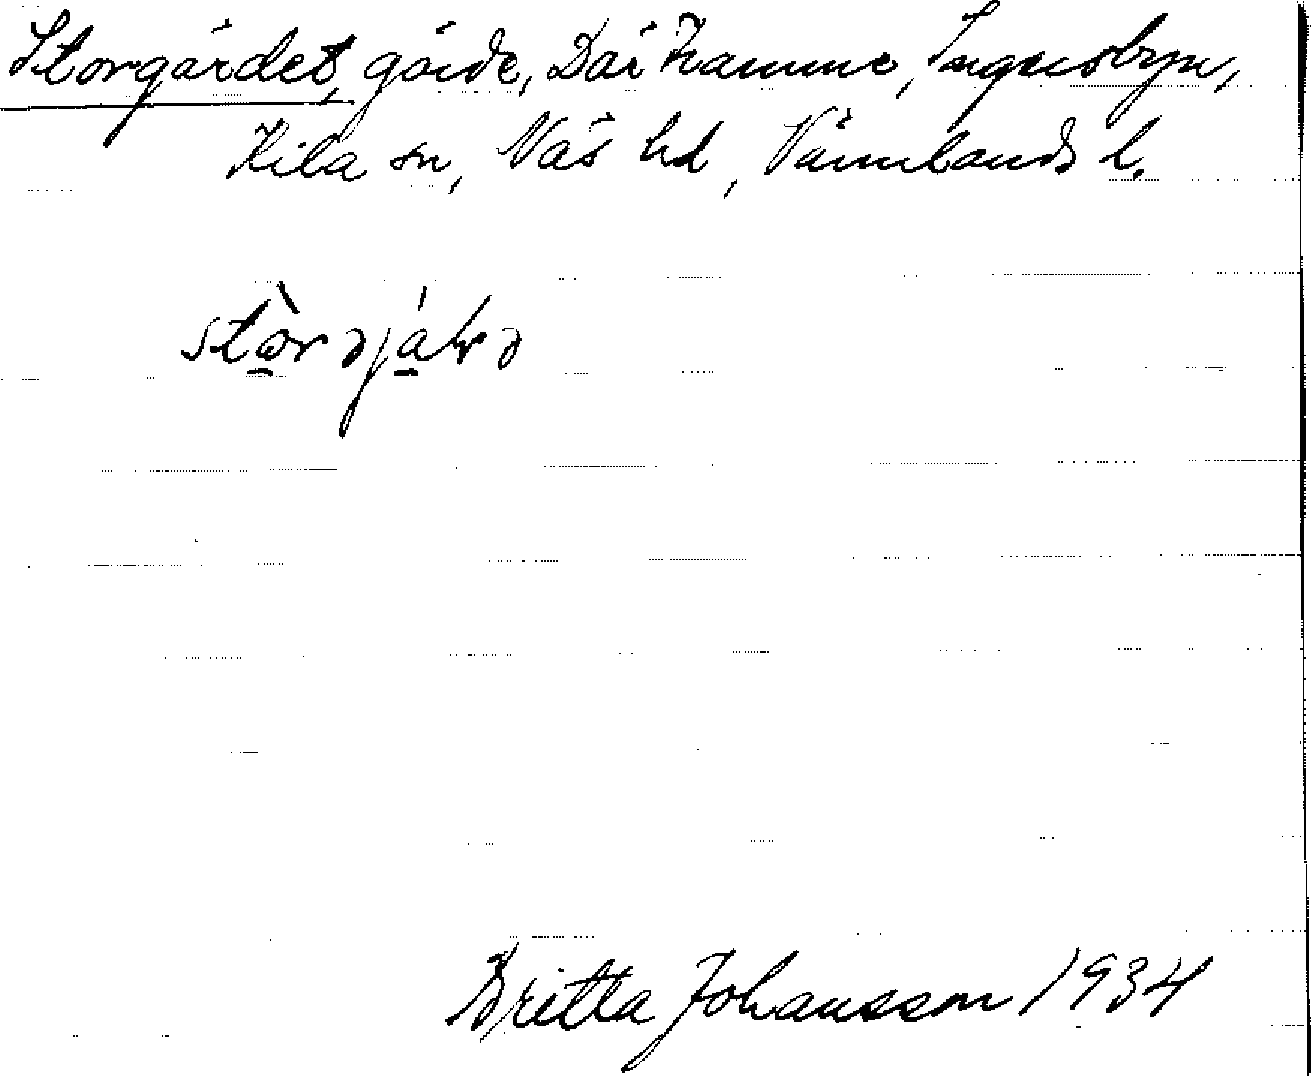 Storgärdet, gärde, Där framme, Ingersbyn,
Kila sn, Näs hd, Värmlands l.
Britta Johansson 1934